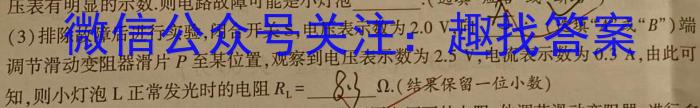 压表有明显的示数,则电路故障可能是小灯泡
(3)排除故障后进行实验,闭合开关S,电压表示数为2.0 V "B")端
微信公众号关注:趣找答案
调节滑动变阻器滑片P至某位置,观察到电压表示数为2.5 V,电流表示数为0.3 A,由此可
知,则小灯泡L正常发光时的电阻R_L= 8.3 Ω.(结果保留一位小数)